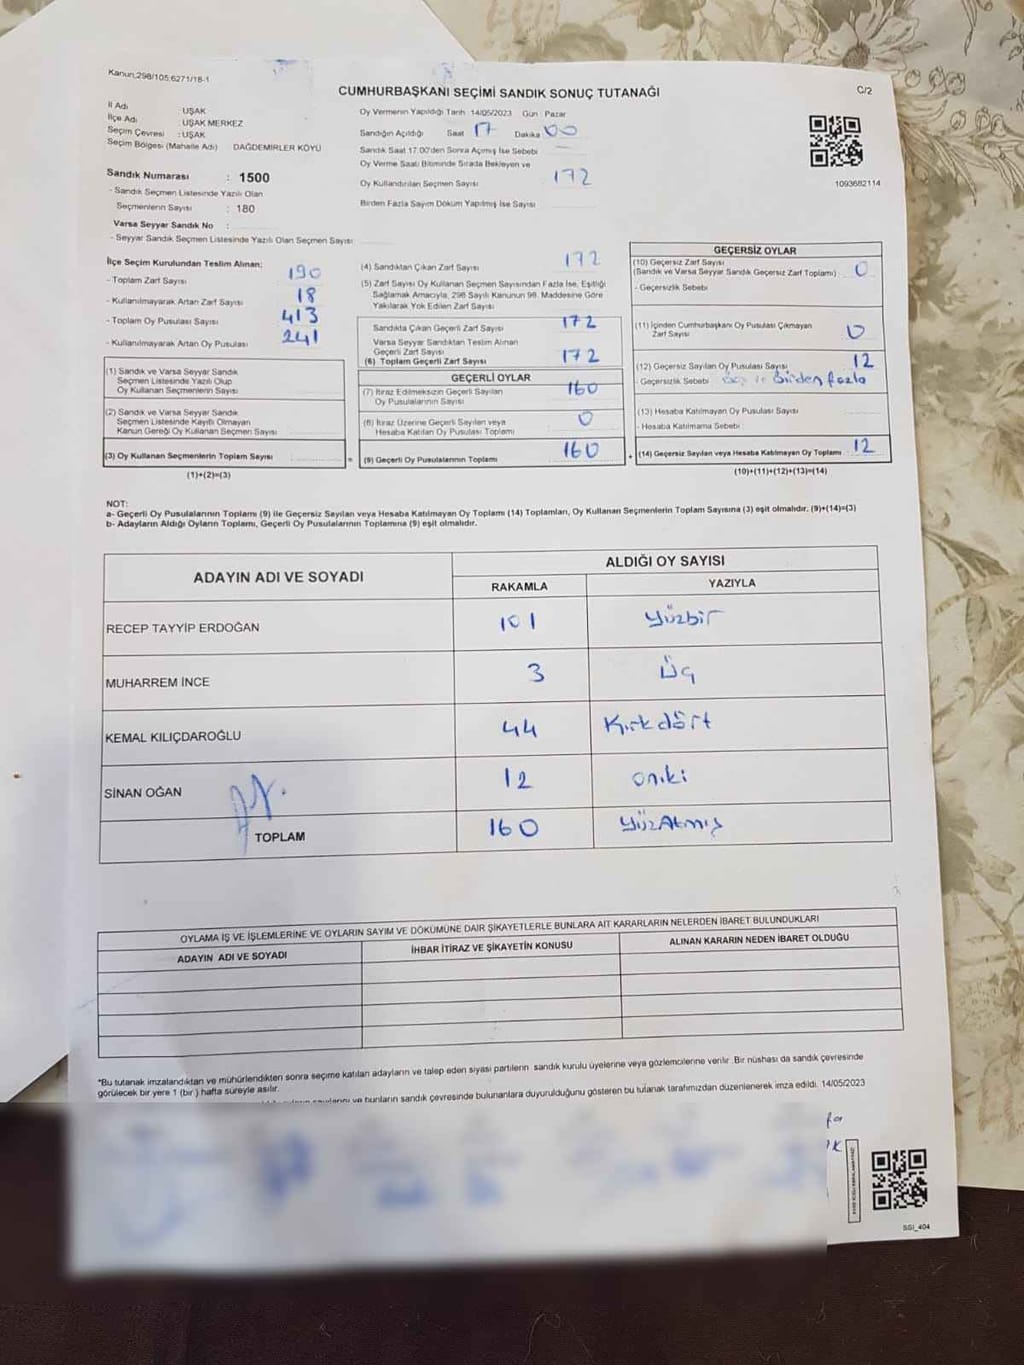 Kanun,298/105;6271/18-1
CUMHURBAŞKANI SEÇİMİ SANDIK SONUÇ TUTANAĞI
C/2
İl Adı : UŞAK
İlçe Adı : UŞAK MERKEZ
Seçim Çevresi : UŞAK
Seçim Bölgesi (Mahalle Adı) DAĞDEMİRLER KÖYÜ
Sandık Numarası : 1500
- Sandık Seçmen Listesinde Yazılı Olan
Seçmenlerin Sayısı : 180
Varsa Seyyar Sandık No :
- Seyyar Sandık Seçmen Listesinde Yazılı Olan Seçmen Sayısı
Oy Vermenin Yapıldığı Tarih 14/05/2023 Gün Pazar
Sandığın Açıldığı Saat 17 Dakika 00
Sandık Saat 17.00'den Sonra Açılmış İse Sebebi
Oy Verme Saati Bitiminde Sırada Bekleyen ve
Oy Kullandırılan Seçmen Sayısı 172
Birden Fazla Sayım Döküm Yapılmış İse Sayısı
1093682114
İlçe Seçim Kurulundan Teslim Alınan;
- Toplam Zarf Sayısı 190
- Kullanılmayarak Artan Zarf Sayısı 18
- Toplam Oy Pusulası Sayısı 413
- Kullanılmayarak Artan Oy Pusulası 241
(1) Sandık ve Varsa Seyyar Sandık
Seçmen Listesinde Yazılı Olup
Oy Kullanan Seçmenlerin Sayısı
(2) Sandık ve Varsa Seyyar Sandık
Seçmen Listesinde Kayıtlı Olmayan
Kanun Gereği Oy Kullanan Seçmen Sayısı
(3) Oy Kullanan Seçmenlerin Toplam Sayısı
(1)+(2)=(3)
(4) Sandıktan Çıkan Zarf Sayısı 172
(5) Zarf Sayısı Oy Kullanan Seçmen Sayısından Fazla İse, Eşitliği
Sağlamak Amacıyla, 298 Sayılı Kanunun 98. Maddesine Göre
Yakılarak Yok Edilen Zarf Sayısı
Sandıkta Çıkan Geçerli Zarf Sayısı 172
Varsa Seyyar Sandıktan Teslim Alınan
Geçerli Zarf Sayısı
(6) Toplam Geçerli Zarf Sayısı 172
GEÇERLİ OYLAR
(7) İtiraz Edilmeksizin Geçerli Sayılan
Oy Pusulalarının Sayısı 160
(8) İtiraz Üzerine Geçerli Sayılan veya
Hesaba Katılan Oy Pusulası Toplamı 0
= (9) Geçerli Oy Pusulalarının Toplamı 160
GEÇERSİZ OYLAR
(10) Geçersiz Zarf Sayısı
(Sandık ve Varsa Seyyar Sandık Geçersiz Zarf Toplamı) 0
- Geçersizlik Sebebi
(11) İçinden Cumhurbaşkanı Oy Pusulası Çıkmayan
Zarf Sayısı 0
(12) Geçersiz Sayılan Oy Pusulası Sayısı 12
- Geçersizlik Sebebi Birden fazla
(13) Hesaba Katılmayan Oy Pusulası Sayısı
- Hesaba Katılmama Sebebi
+ (14) Geçersiz Sayılan veya Hesaba Katılmayan Oy Toplamı 12
(10)+(11)+(12)+(13)=(14)
NOT:
a- Geçerli Oy Pusulalarının Toplamı (9) ile Geçersiz Sayılan veya Hesaba Katılmayan Oy Toplamı (14) Toplamları, Oy Kullanan Seçmenlerin Toplam Sayısına (3) eşit olmalıdır. (9)+(14)=(3)
b- Adayların Aldığı Oyların Toplamı, Geçerli Oy Pusulalarının Toplamına (9) eşit olmalıdır.
ADAYIN ADI VE SOYADI ALDIĞI OY SAYISI
RAKAMLA YAZIYLA
RECEP TAYYİP ERDOĞAN 101 Yüzbir
MUHARREM İNCE 3 Üç
KEMAL KILIÇDAROĞLU 44 Kırkdört
SİNAN OĞAN 12 oniki
TOPLAM 160 YüzAtmış
OYLAMA İŞ VE İŞLEMLERİNE VE OYLARIN SAYIM VE DÖKÜMÜNE DAİR ŞİKAYETLERLE BUNLARA AİT KARARLARIN NELERDEN İBARET BULUNDUKLARI
ADAYIN ADI VE SOYADI İHBAR İTİRAZ VE ŞİKAYETİN KONUSU ALINAN KARARIN NEDEN İBARET OLDUĞU
*Bu tutanak imzalandıktan ve mühürlendikten sonra seçime katılan adayların ve talep eden siyasi partilerin sandık kurulu üyelerine veya gözlemcilerine verilir. Bir nüshası da sandık çevresinde
görülecek bir yere 1 (bir) hafta süreyle asılır.
ve bunların sandık çevresinde bulunanlara duyurulduğunu gösteren bu tutanak tarafımızdan düzenlenerek imza edildi. 14/05/2023
SSI_404